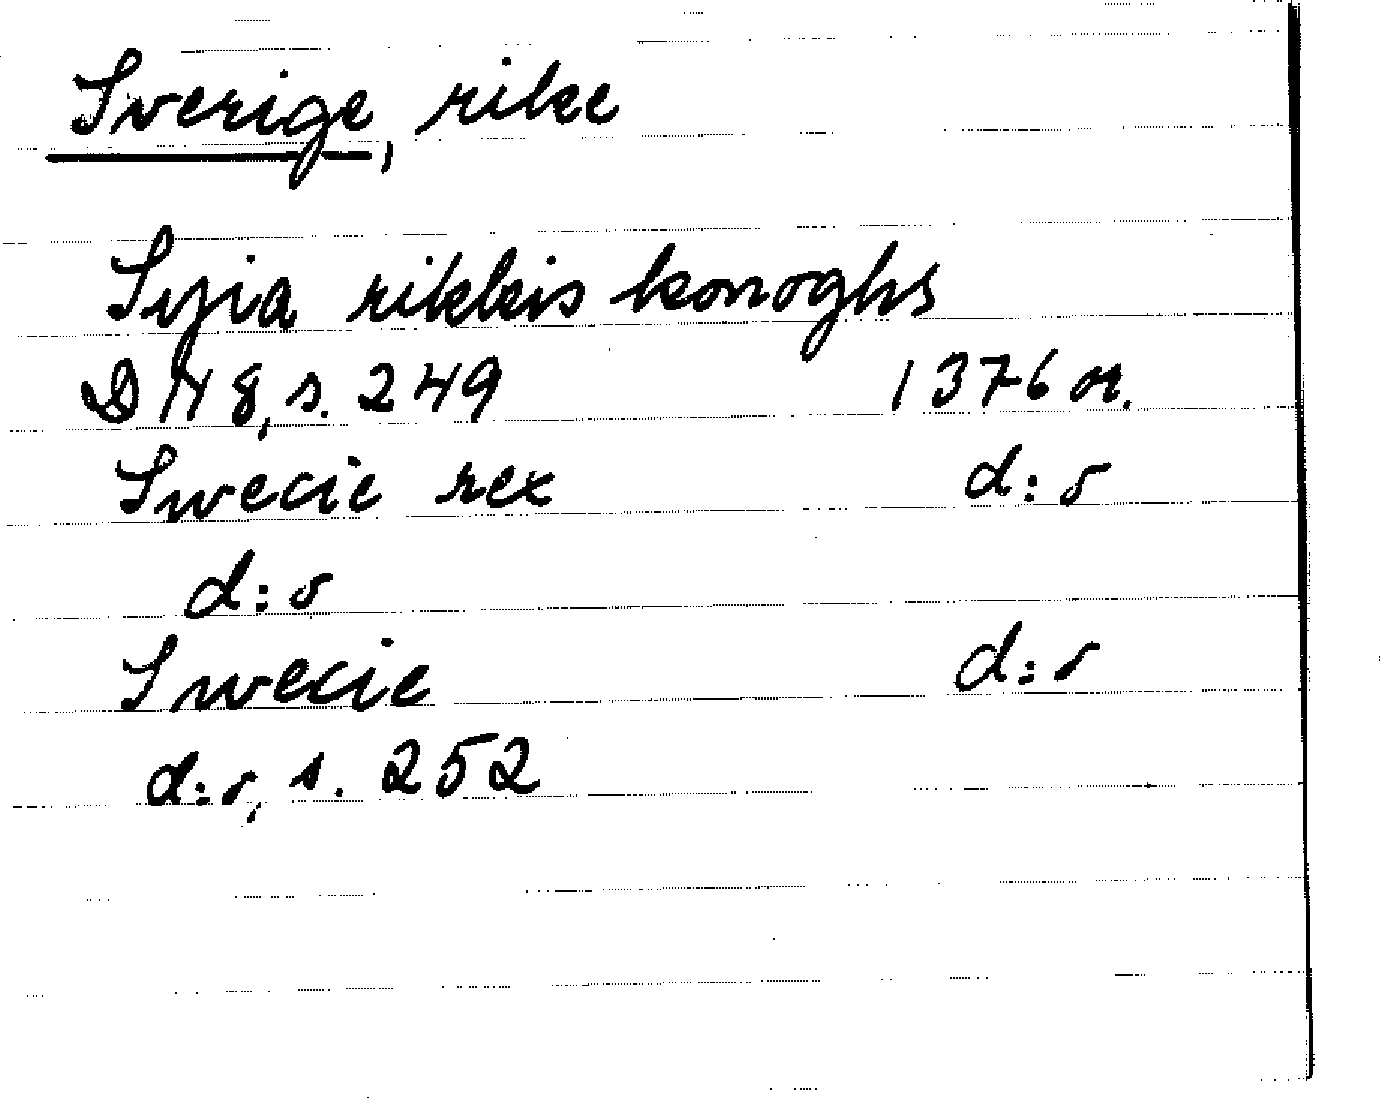 Sverige, rike
Syia rikkis konoghs
DN 8, s. 249 1376 or.
Swecie rex d:o
d:o
Swecie d:o
d:o, s. 252